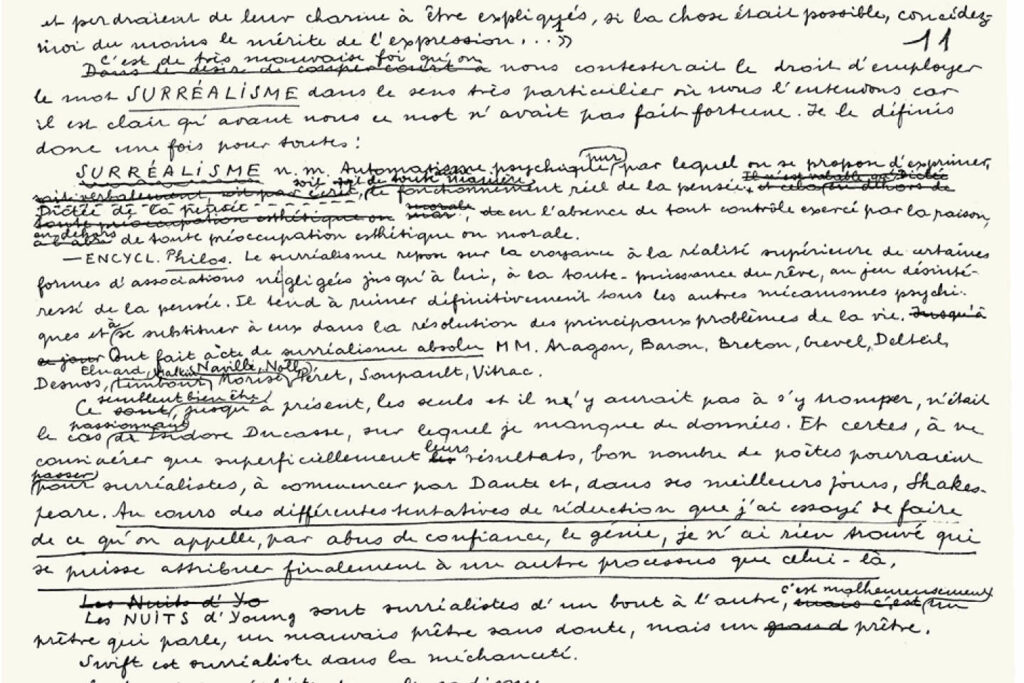 et perdraient de leur charme à être expliqués, si la chose était possible, concédez-
moi du moins le mérite de l'expression...»
11
C'est de très mauvaise foi qu'on
Dans le désir de couper court à nous contesterait le droit d'employer
le mot SURRÉALISME dans le sens très particulier où nous l'entendons car
il est clair qu'avant nous ce mot n'avait pas fait fortune. Je le définis
donc une fois pour toutes:
pur
SURRÉALISME n. m. Automatisme psychique, par lequel on se propose d'exprimer,
soit de toute manière,
soit verbalement, soit par écrit, le fonctionnement réel de la pensée, et cela en dehors de
Dictée de la pensée
morale
toute préoccupation esthétique ou en l'absence de tout contrôle exercé par la raison,
en dehors
de toute préoccupation esthétique ou morale.
— ENCYCL. Philos. Le surréalisme repose sur la croyance à la réalité supérieure de certaines
formes d'associations négligées jusqu'à lui, à la toute-puissance du rêve, au jeu désinté-
ressé de la pensée. Il tend à ruiner définitivement tous les autres mécanismes psychi-
ques et à se substituer à eux dans la résolution des principaux problèmes de la vie. Jusqu'à
ce jour Ont fait acte de surréalisme absolu MM. Aragon, Baron, Breton, Crevel, Delteil,
Eluard, Malkine, Naville, Noll,
Desnos, Limbour, Morise, Péret, Soupault, Vitrac.
semblent bien être
Ce sont, jusqu'à présent, les seuls et il n'y aurait pas à s'y tromper, n'était
passionnant
le cas de Isidore Ducasse, sur lequel je manque de données. Et certes, à ne
leurs
considérer que superficiellement les résultats, bon nombre de poètes pourraient
passer
pour surréalistes, à commencer par Dante et, dans ses meilleurs jours, Shakes-
peare. Au cours des différentes tentatives de réduction que j'ai essayé de faire
de ce qu'on appelle, par abus de confiance, le génie, je n'ai rien trouvé qui
se puisse attribuer finalement à un autre processus que celui-là.
Les Nuits d'Yo
c'est malheureusement
Les NUITS d'Young sont surréalistes d'un bout à l'autre, mais c'est un
prêtre qui parle, un mauvais prêtre sans doute, mais un grand prêtre.
Swift est surréaliste dans la méchanceté.